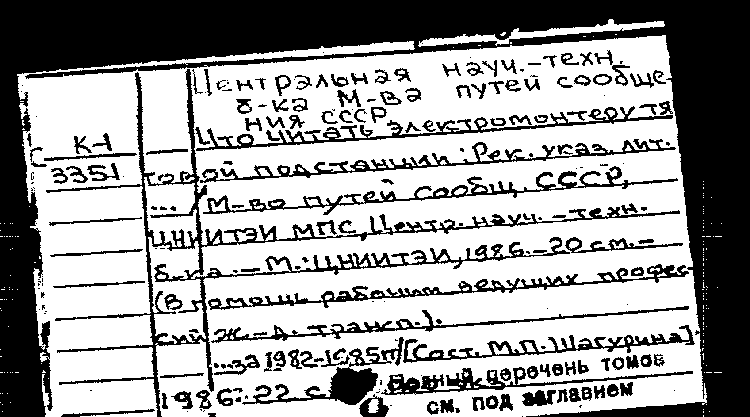 Центральная науч.-техн.
б-ка М-ва путей сообще-
ния СССР
К-1
Что читать электромонтеру тя
3351
говой подстанции: Рек. указ. лит.
... / М-во путей сообщ. СССР,
ЦНИИТЭИ МПС, Центр. науч.-техн.
б-ка. — М.: ЦНИИТЭИ, 1986. — 20 см. —
(В помощь рабочим ведущих профес-
сий ж.-д. трансп.).
...за 1982-1985гг/[Сост. М.П. Шагурина].
1986. 22 с.
Полный перечень томов
см. под заглавием